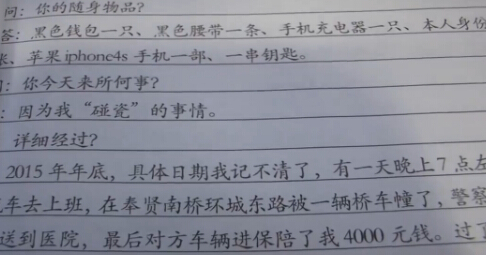 问：你的随身物品?
答：黑色钱包一只、黑色腰带一条、手机充电器一只、本人身份
、苹果iphone4s手机一部、一串钥匙。
：你今天来所何事?
：因为我“碰瓷”的事情。
详细经过?
2015年年底，具体日期我记不清了，有一天晚上7点左
车去上班，在奉贤南桥环城东路被一辆桥车幢了，警察
送到医院，最后对方车辆进保陪了我4000元钱。过了